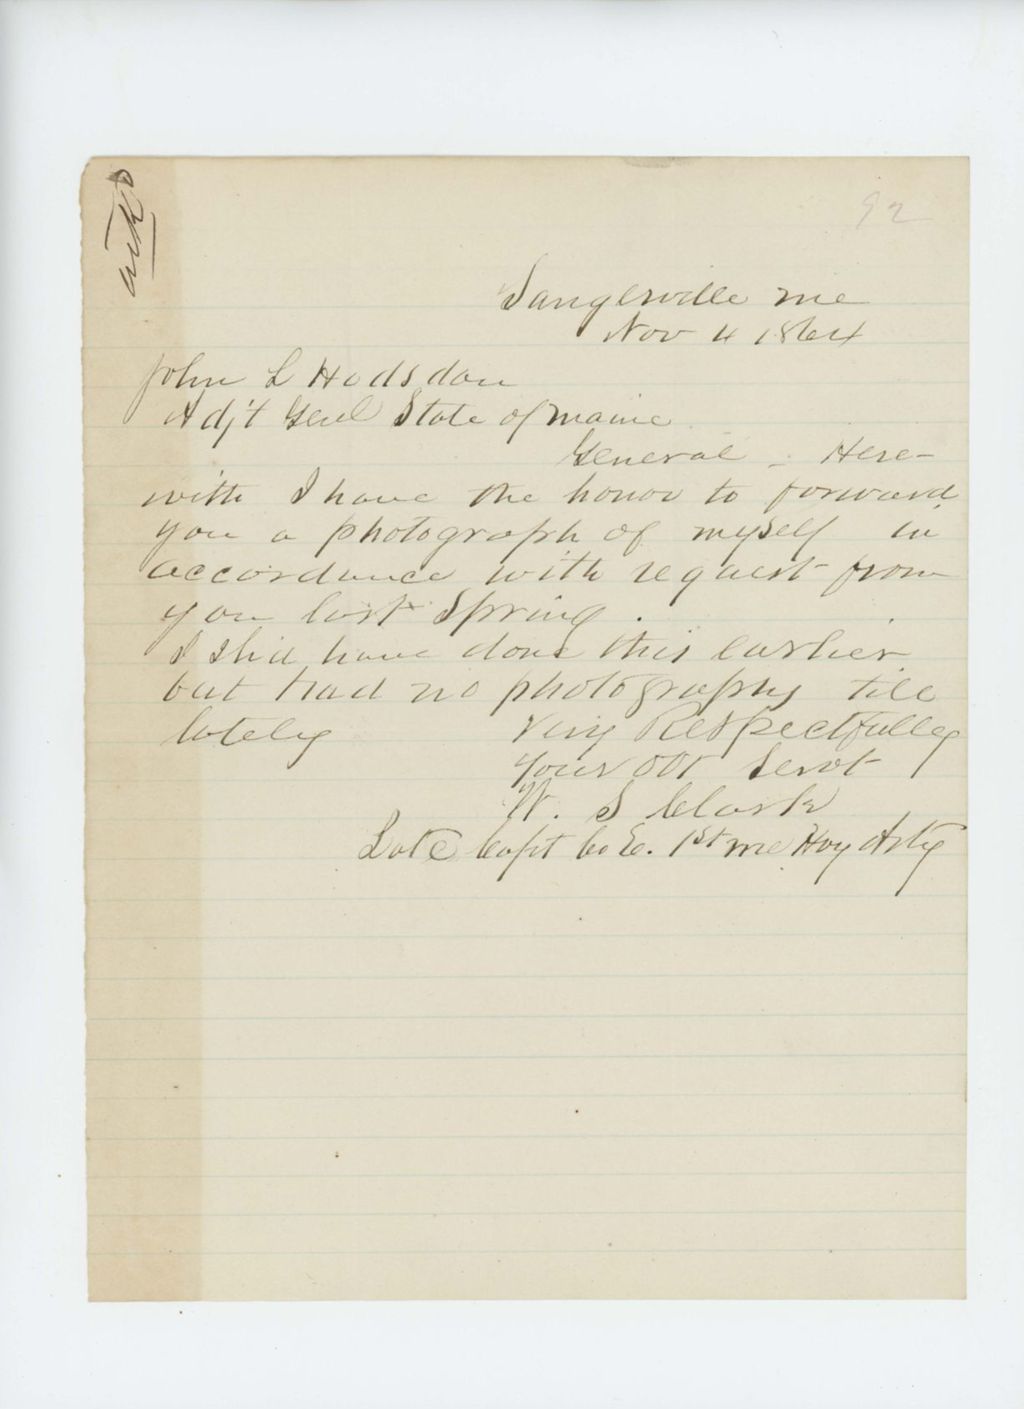 ackd
92
Sangerville Me
Nov 4 1864
John L Hodsdon
Adj't Genl State of Maine
General - Here-
with I have the honor to forward
you a photograph of myself in
accordance with request from
you last Spring.
I sh'd have done this earlier
but had no photographs till
lately
Very Respectfully
Your Obt Servt
W. S Clark
Late Capt Co E. 1st Me Hvy Arty